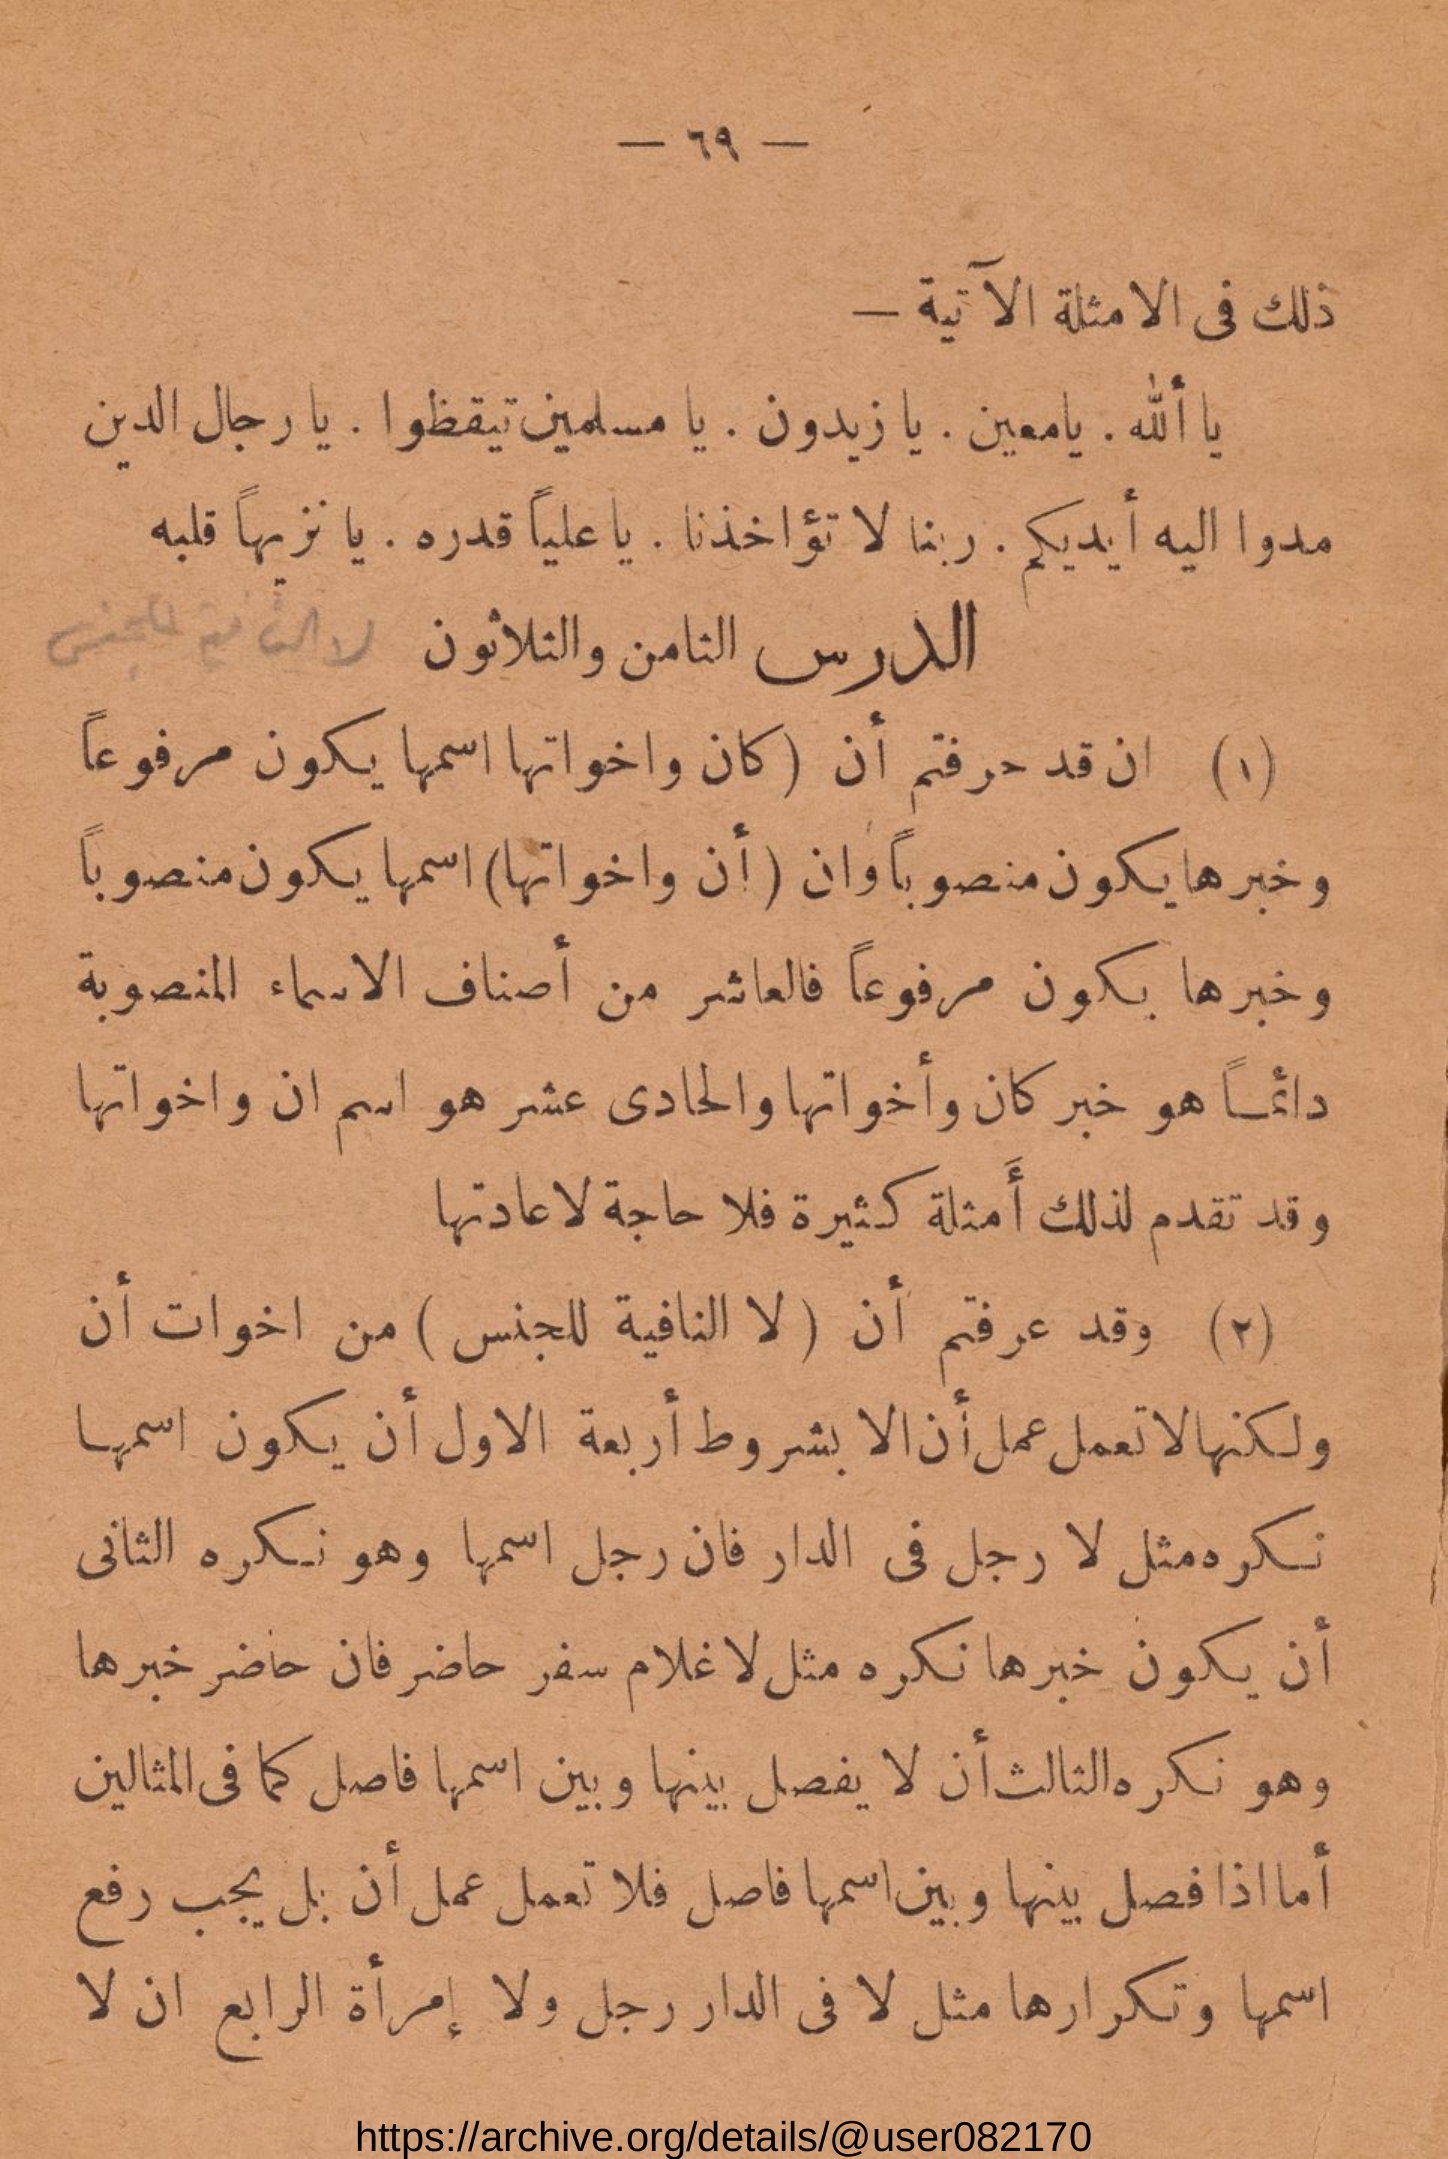 — ٦٩ —
ذلك فى الامثلة الآتية —
يا ألله . يامعين . يا زيدون . يا مسلمين تيقظوا . يا رجال الدين
مدوا اليه أيديكم . ربنا لا تؤاخذنا . يا علياً قدره . يا نزيهاً قلبه
الدرس الثامن والثلاثون
لا النافية للجنس
(١) ان قد عرفتم أن (كان واخواتها اسمها يكون مرفوعاً
وخبرها يكون منصوباً وان (أن واخواتها) اسمها يكون منصوباً
وخبرها يكون مرفوعاً فالعاشر من أصناف الاسماء المنصوبة
دائمـاً هو خبر كان وأخواتها والحادى عشر هو اسم ان واخواتها
وقد تقدم لذلك أَمثلة كثيرة فلا حاجة لاعادتها
(٢) وقد عرفتم أن (لا النافية للجنس) من اخوات أن
ولكنها لا تعمل عمل أن الا بشروط أربعة الاول أن يكون اسمهـا
نـكره مثل لا رجل فى الدار فان رجل اسمها وهو نـكره الثانى
أن يكون خبرها نكره مثل لا غلام سفر حاضر فان حاضر خبرها
وهو نكره الثالث أن لا يفصل بينها وبين اسمها فاصل كما فى المثالين
أما اذا فصل بينها وبين اسمها فاصل فلا تعمل عمل أن بل يجب رفع
اسمها وتكرارها مثل لا فى الدار رجل ولا إمرأة الرابع ان لا
https://archive.org/details/@user082170